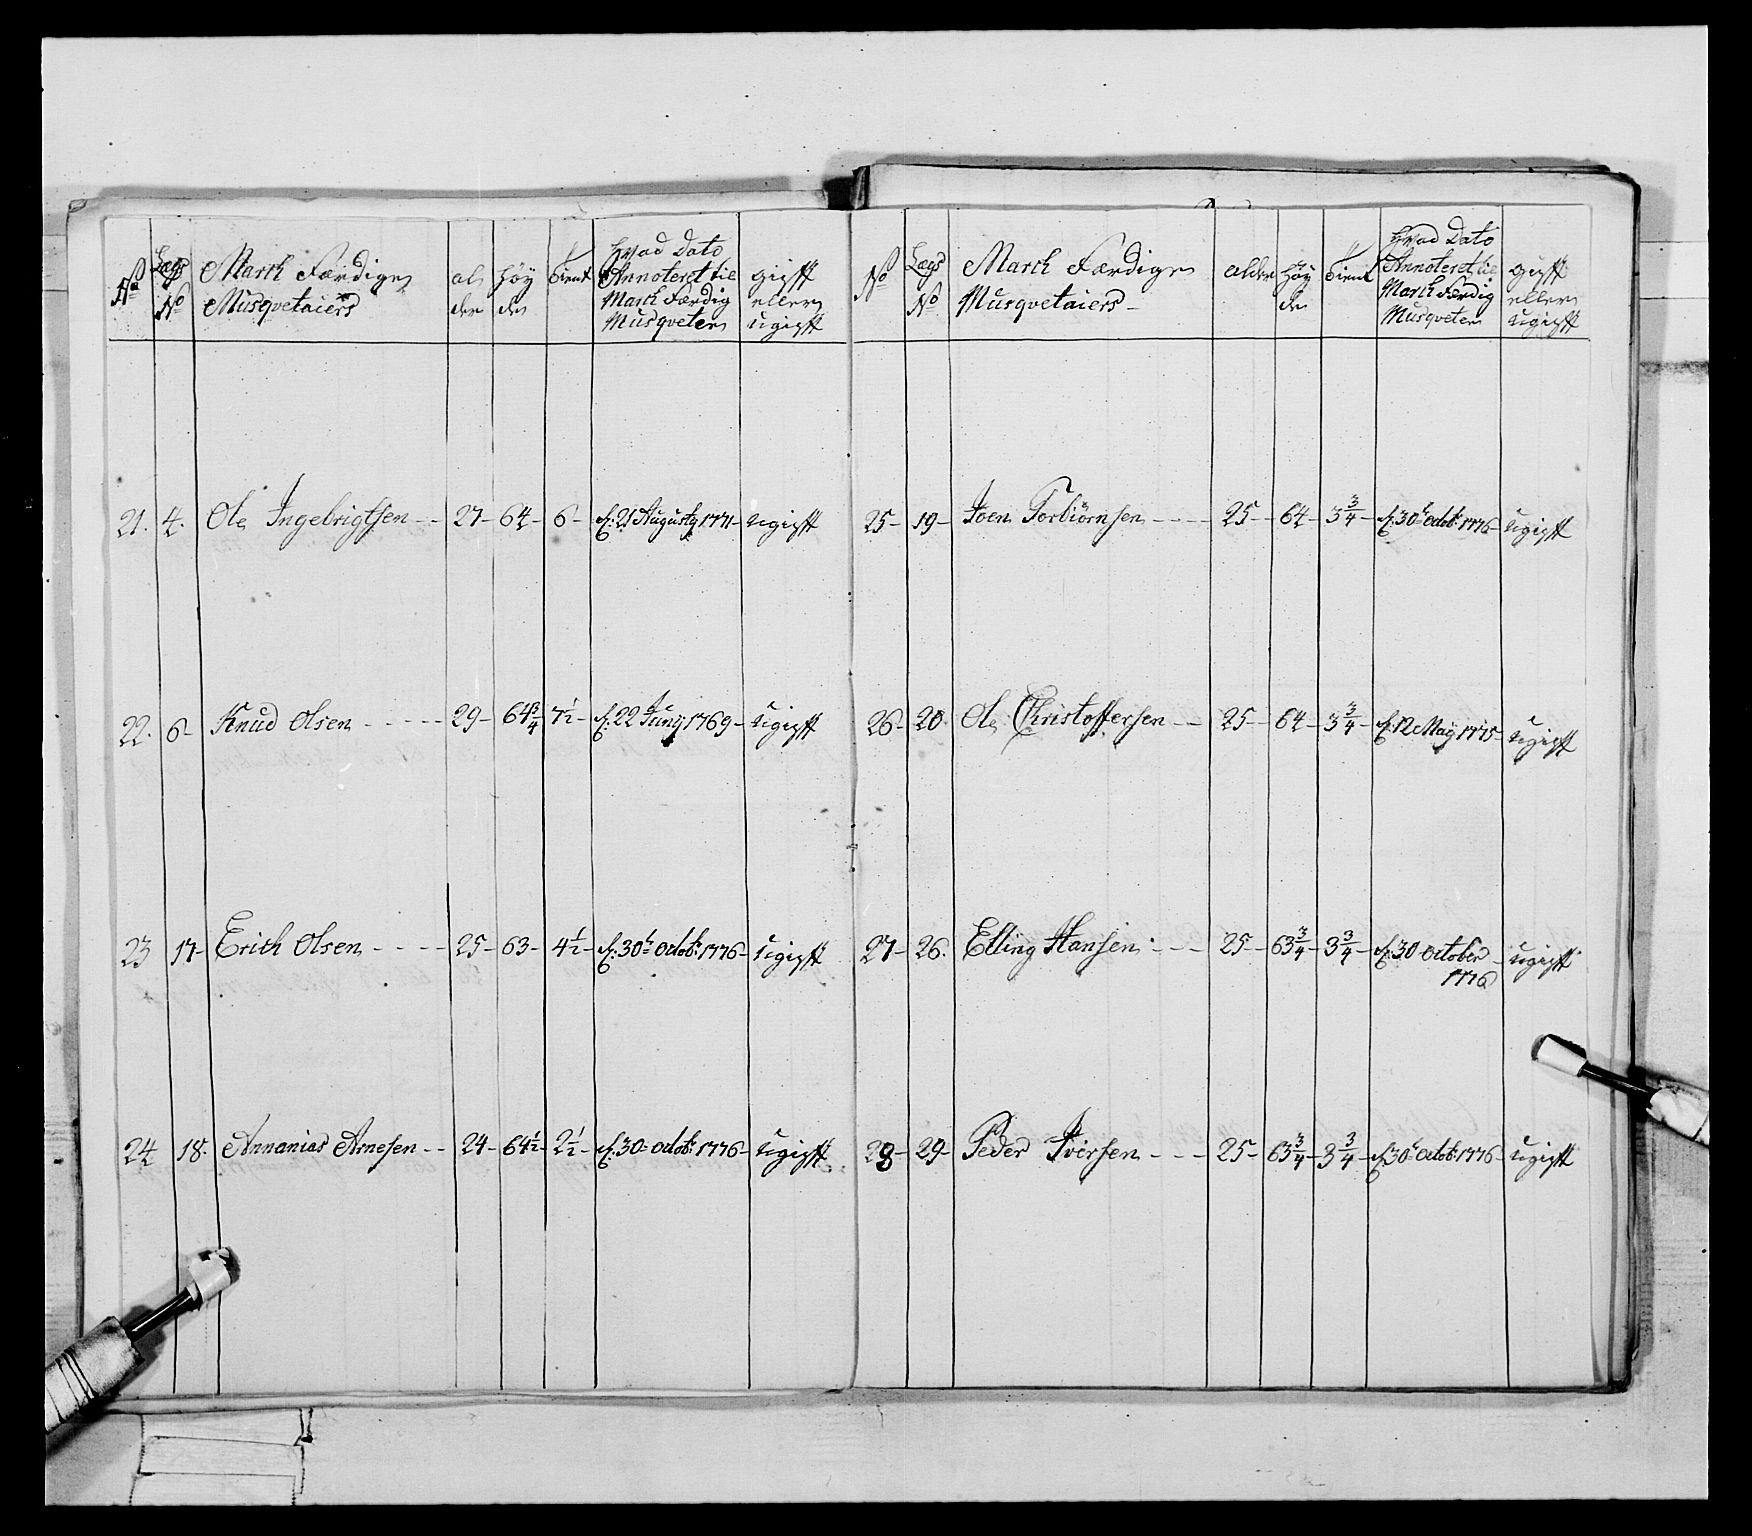 No Lægs No March Færdige Musqvetaiers al der Høy de Tient Hvad Dato Annoteret til March Færdig Musqveter gifft eller ugifft
21. 4. Ole Ingebrigtsen -- 27- 64- 6- d: 21 Augusty 1771- ugifft
22. 6- Knud Olsen ----- 29- 64 3/4 7 1/2- d: 22 Juny 1769- ugifft
23 17- Erich Olsen ---- 25- 63- 4 1/2- d: 30t octob: 1776- ugifft
24 18. Annanias Arnesen -- 24- 64 1/2- 2 1/2- d: 30- octob: 1776- ugifft
No Lægs No March Færdige Musqvetaiers- alder Høy de Tient Hvad Dato Annoteret til March Færdig Musqveter gifft eller ugifft
25- 19- Joen Torbiörnsen ---- 25- 64- 3 3/4- d: 30t octob: 1776- ugifft
26- 20- Ole Christoffersen -- 25- 64- 3 3/4- d: 12 May 1775- ugifft
27- 26. Elling Hansen --- 25- 63 3/4- 3 3/4- d: 30 october 1776 ugifft
28- 29- Peder Iversen --- 25- 63 3/4- 3 3/4- d: 30t octob: 1776- ugifft